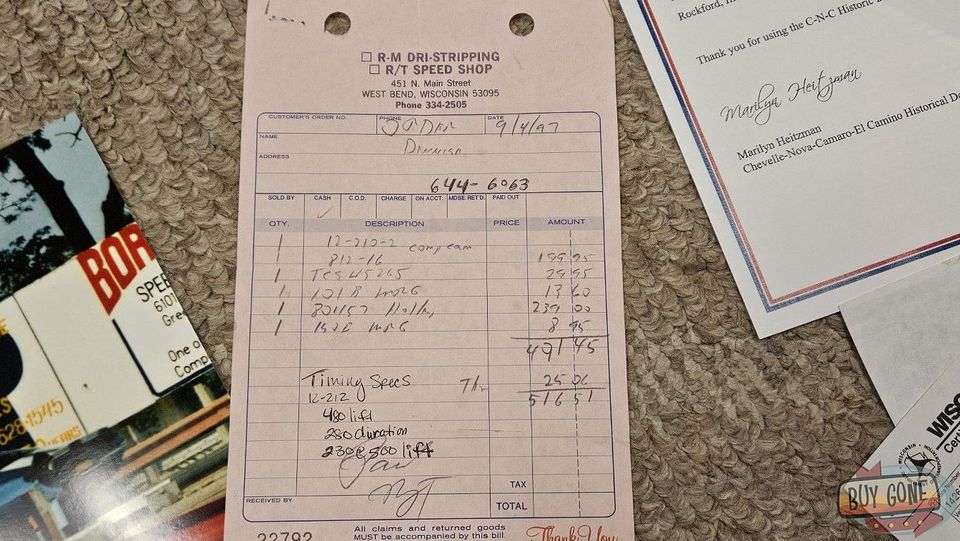 R-M DRI-STRIPPING
R/T SPEED SHOP
451 N. Main Street
WEST BEND, WISCONSIN 53095
Phone 334-2505
CUSTOMER'S ORDER NO. PHONE DATE
9/4/97
NAME
ADDRESS
644-6063
SOLD BY CASH C.O.D. CHARGE ON ACCT. MDSE. RET'D. PAID OUT
QTY. DESCRIPTION PRICE AMOUNT
1 12-212-2
812-16 comp cam 199 95
1 TCS 45265 29 95
1018 MRG 13 60
1 801157 Holley 239 00
1 MRG 8 95
491 45
Timing Specs 25 06
12-212 516 51
480 lift
280 duration
230 @ 500 lift
TAX
TOTAL
RECEIVED BY
22792
All claims and returned goods
MUST be accompanied by this bill.
Thank You
BOR
SPEE
6101
Gree
One o
Comp
628-1545
YEARS
Rockford,
Thank you for using the C-N-C Historic
Marilyn Heitzman
Marilyn Heitzman
Chevelle-Nova-Camaro-El Camino Historical De
WISC
Cert
WISCONSIN
BUY GONE